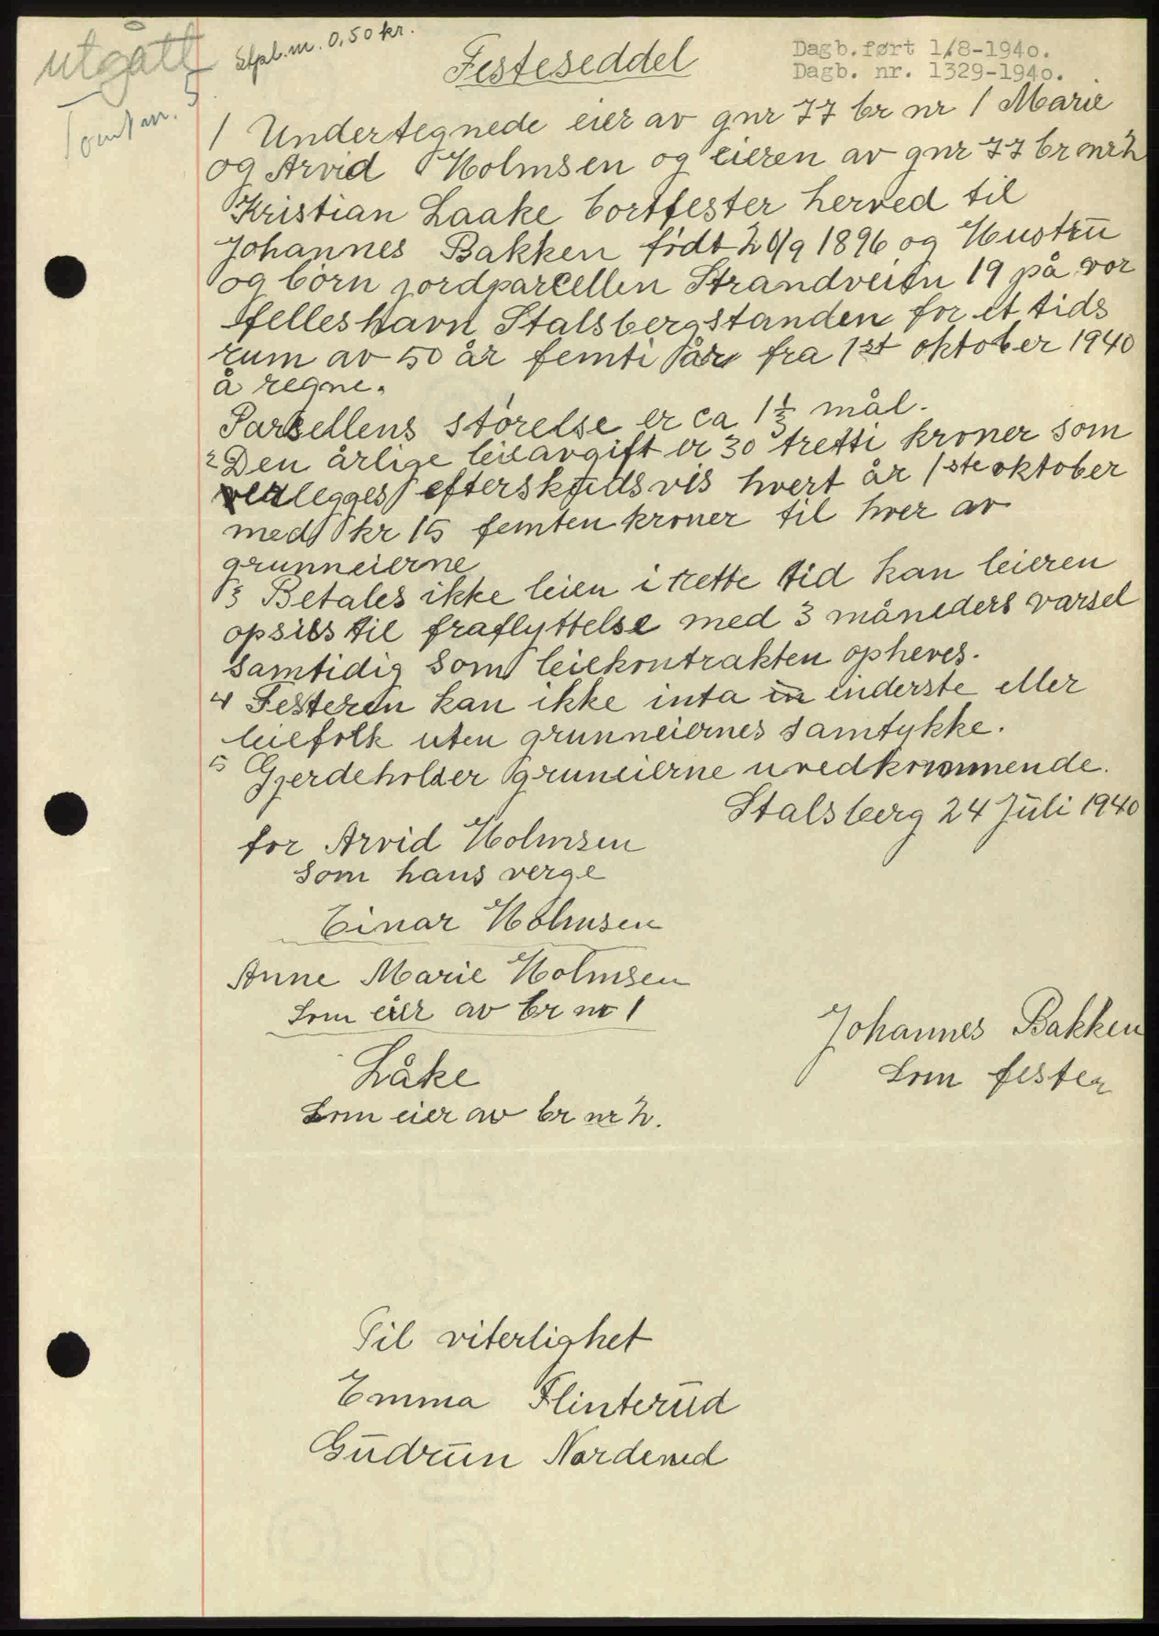 utgått
Stpl.m. 0,50 kr.
Festeseddel
Dagb.ført 1/8-1940.
Dagb. nr. 1329-1940.
Tomt nr. 5
1 Undertegnede eier av gnr 77 br nr 1 Marie
og Arvid Holmsen og eieren av gnr 77 br nr 2
Kristian Laake bortfester herved til
Johannes Bakken født 20/9 1896 og Hustru
og børn jordparcellen Strandveien 19 på vor
felleshavn Stalsbergstanden for et tids
rum av 50 år femti år fra 1st oktober 1940
å regne.
Parsellens størelse er ca 1 1/3 mål.
2 Den årlige leieavgift er 30 tretti kroner som
erlegges efterskudsvis hvert år 1ste oktober
med kr 15 femten kroner til hver av
grunneierne
3 Betales ikke leien i rette tid kan leieren
opsies til fraflyttelse med 3 måneders varsel
samtidig som leiekontrakten opheves.
4 Festeren kan ikke inta in inderste eller
leiefolk uten grunneiernes samtykke.
5 Gjerdeholder gruneierne uvedkommende.
Stalsberg 24 Juli 1940
for Arvid Holmsen
som hans verge
Einar Holmsen
Anne Marie Holmsen
som eier av br nr 1
Johannes Bakken
som fester
Låke
som eier av br nr 2.
Til viterlighet
Emma Flinterud
Gudrun Norderud